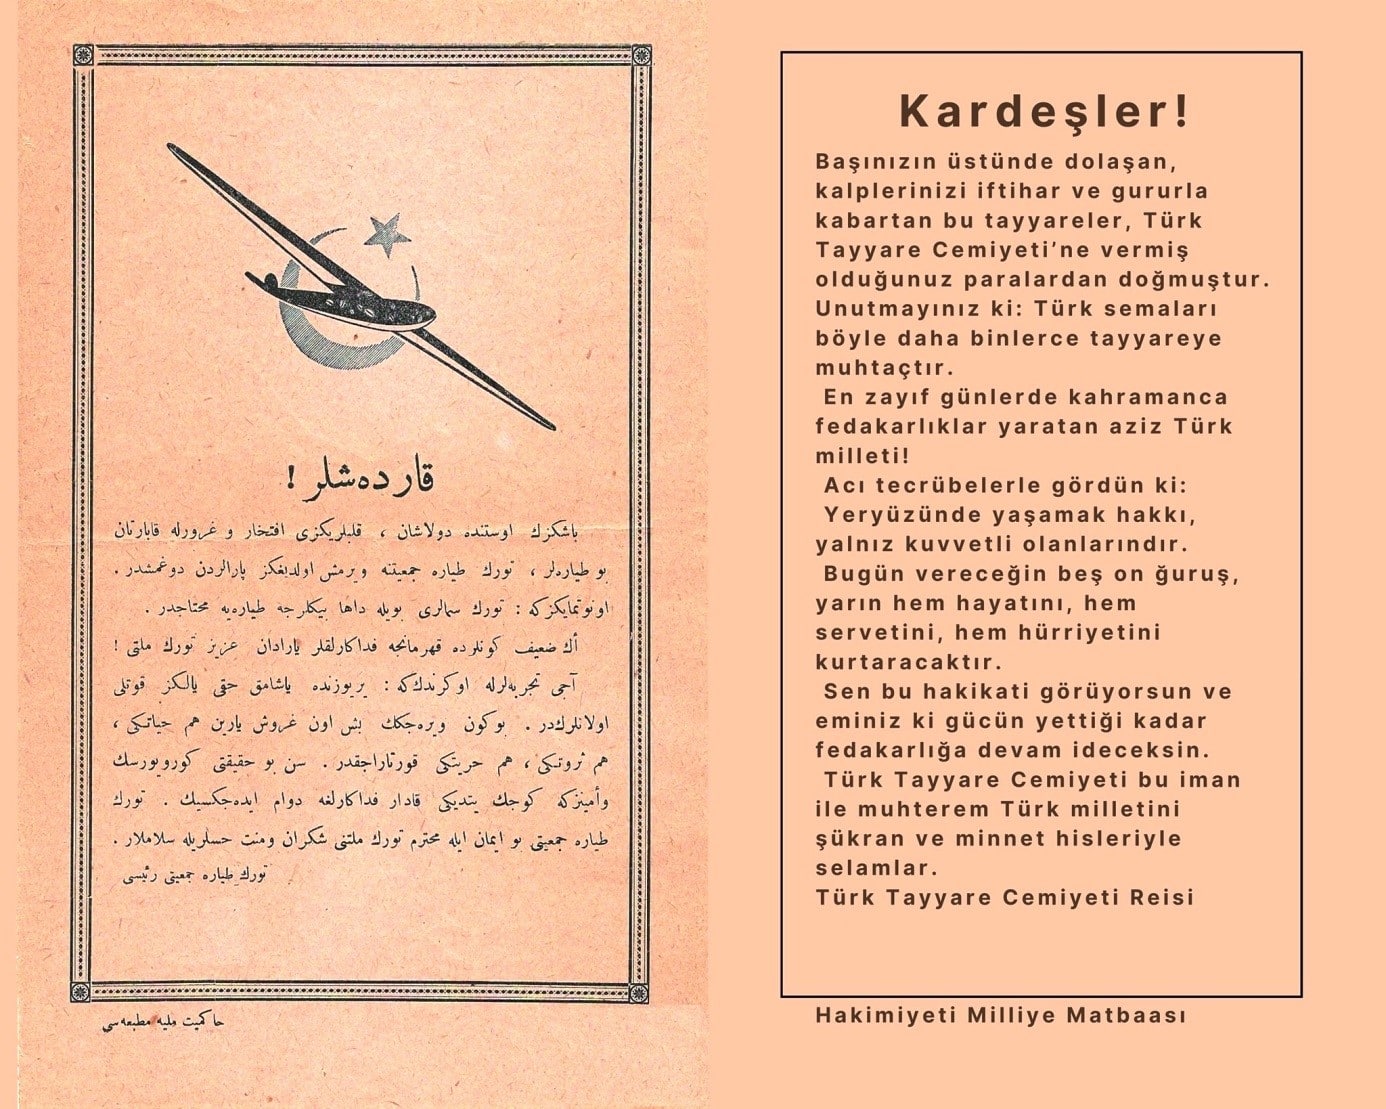 قارده‌شلر !
باشكزك اوستنده دولاشان ، قلبلريكزى افتخار و غرورله قابارتان
بو طياره‌لر ، تورك طياره جمعيتنه ويرمش اولديغكز پارالردن دوغمشدر .
اونوتمايكزكه : تورك سمالرى بويله داها بيكلرجه طياره‌يه محتاجدر .
أك ضعيف كونلرده قهرمانجه فداكارلقلر يارادان عزيز تورك ملتى !
آجى تجربه‌لرله اوكرندكه : يريوزنده ياشامق حقى يالكز قوتلى
اولانلركدر . بوكون ويره‌جكك بش اون غروش يارين هم حياتكى ،
هم ثروتكى ، هم حريتكى قورتاراجقدر . سن بو حقيقتى كورويورسك
وأمينزكه كوجك يتديكى قادار فداكارلغه دوام ايده‌جكسيك . تورك
طياره جمعيتى بو ايمان ايله محترم تورك ملتنى شكران ومنت حسلريله سلاملار .
تورك طياره جمعيتى رئيسى
حاكميت مليه مطبعه‌سى
Kardeşler!
Başınızın üstünde dolaşan,
kalplerinizi iftihar ve gururla
kabartan bu tayyareler, Türk
Tayyare Cemiyeti’ne vermiş
olduğunuz paralardan doğmuştur.
Unutmayınız ki: Türk semaları
böyle daha binlerce tayyareye
muhtaçtır.
En zayıf günlerde kahramanca
fedakarlıklar yaratan aziz Türk
milleti!
Acı tecrübelerle gördün ki:
Yeryüzünde yaşamak hakkı,
yalnız kuvvetli olanlarındır.
Bugün vereceğin beş on ğuruş,
yarın hem hayatını, hem
servetini, hem hürriyetini
kurtaracaktır.
Sen bu hakikati görüyorsun ve
eminiz ki gücün yettiği kadar
fedakarlığa devam ideceksin.
Türk Tayyare Cemiyeti bu iman
ile muhterem Türk milletini
şükran ve minnet hisleriyle
selamlar.
Türk Tayyare Cemiyeti Reisi
Hakimiyeti Milliye Matbaası